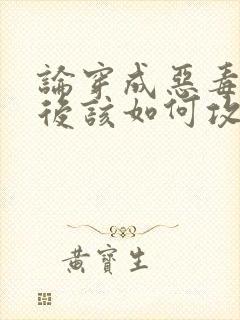 論穿成惡毒
後該如何攻
黃寶生